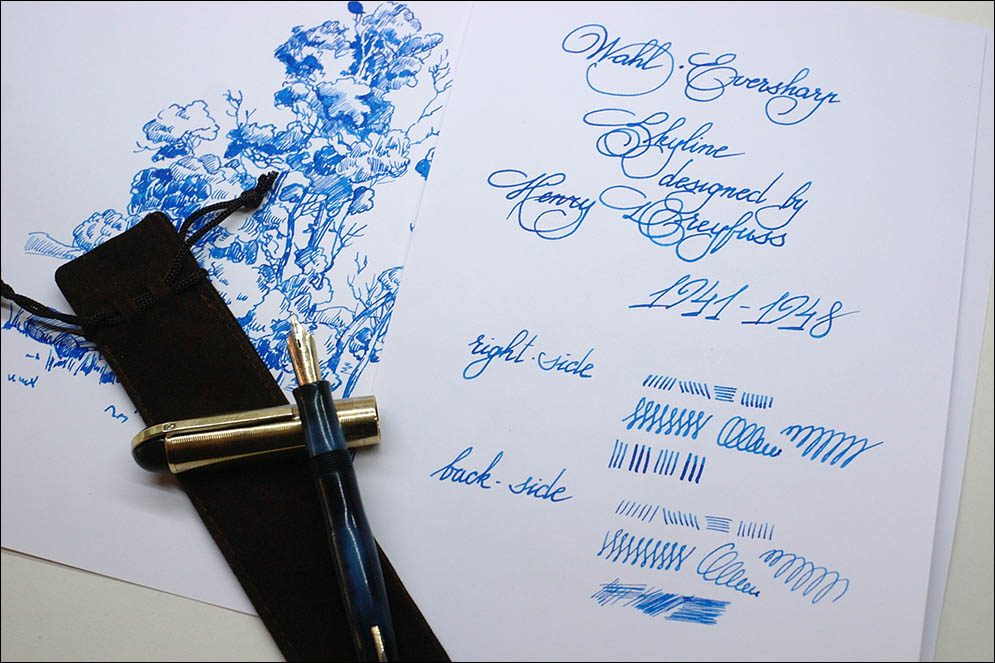 Wahl · Eversharp
Skyline
designed by
Henry Dreyfuss
1941-1948
right-side
back-side